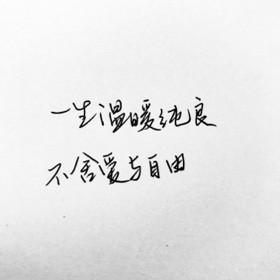 一生温暖纯良
不舍爱与自由